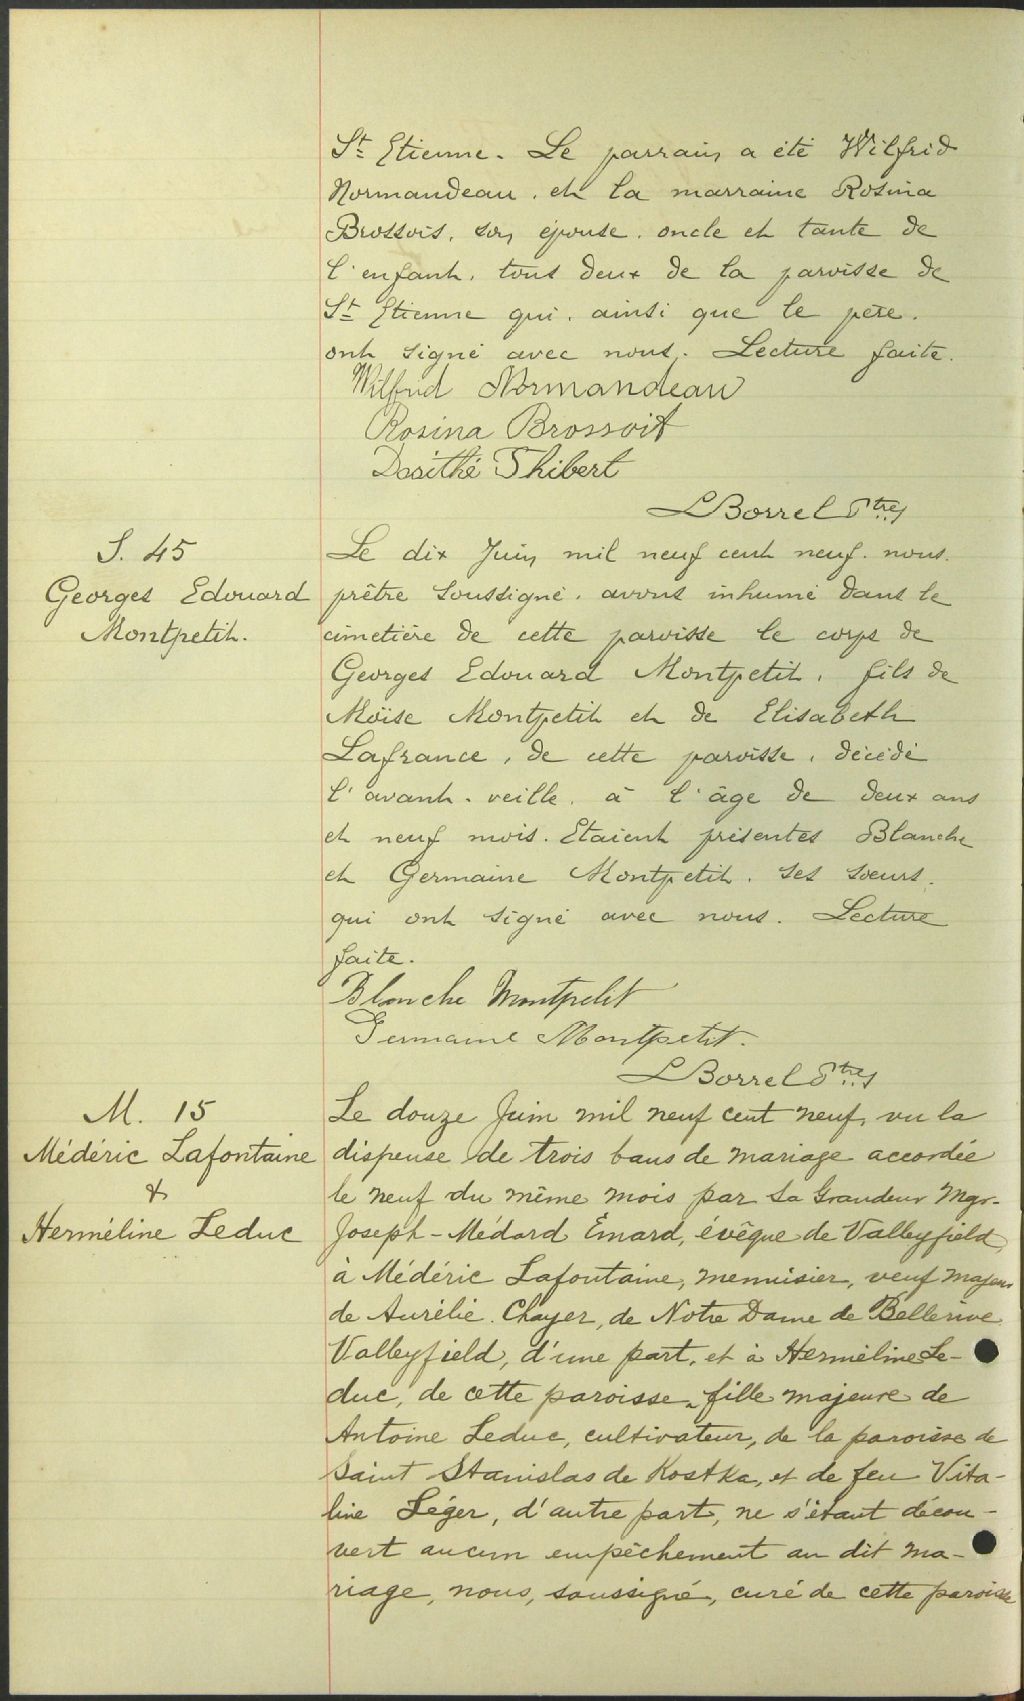 St Etienne. Le parrain a été Wilfrid
Normandeau. et la marraine Rosina
Brossois. son épouse. oncle et tante de
l'enfant. tous deux de la paroisse de
St Etienne qui. ainsi que le père.
ont signé avec nous. Lecture faite.
Wilfrid Normandeau
Rosina Brossoit
Dosithé Thibert
L Borrel Ptre
S. 45
Georges Edouard
Montpetit.
Le dix Juin mil neuf cent neuf. nous.
prêtre soussigné. avons inhumé dans le
cimetière de cette paroisse le corps de
Georges Edouard Montpetit. fils de
Moïse Montpetit et de Elisabeth
Lafrance, de cette paroisse, décédé
l'avant-veille. à l'âge de deux ans
et neuf mois. Etaient présentes Blanche
et Germaine Montpetit. ses soeurs.
qui ont signé avec nous. Lecture
faite.
Blanche Montpetit
Germaine Montpetit.
L Borrel Ptre
M. 15
Médéric Lafontaine
&
Herméline Leduc
Le douze Juin mil neuf cent neuf, vu la
dispense de trois bans de mariage accordée
le neuf du même mois par Sa Grandeur Mgr.
Joseph-Médard Émard, évêque de Valleyfield,
à Médéric Lafontaine, menuisier, veuf majeur
de Aurélie Chayer, de Notre Dame de Bellerive
Valleyfield, d'une part, et à Herméline Le-
duc, de cette paroisse, fille majeure de
Antoine Leduc, cultivateur, de la paroisse de
Saint Stanislas de Kostka, et de feu Vita-
line Léger, d'autre part, ne s'étant décou-
vert aucun empêchement au dit ma-
riage, nous, soussigné, curé de cette paroisse